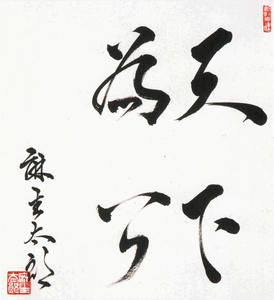 天下
為公
麻生太郎